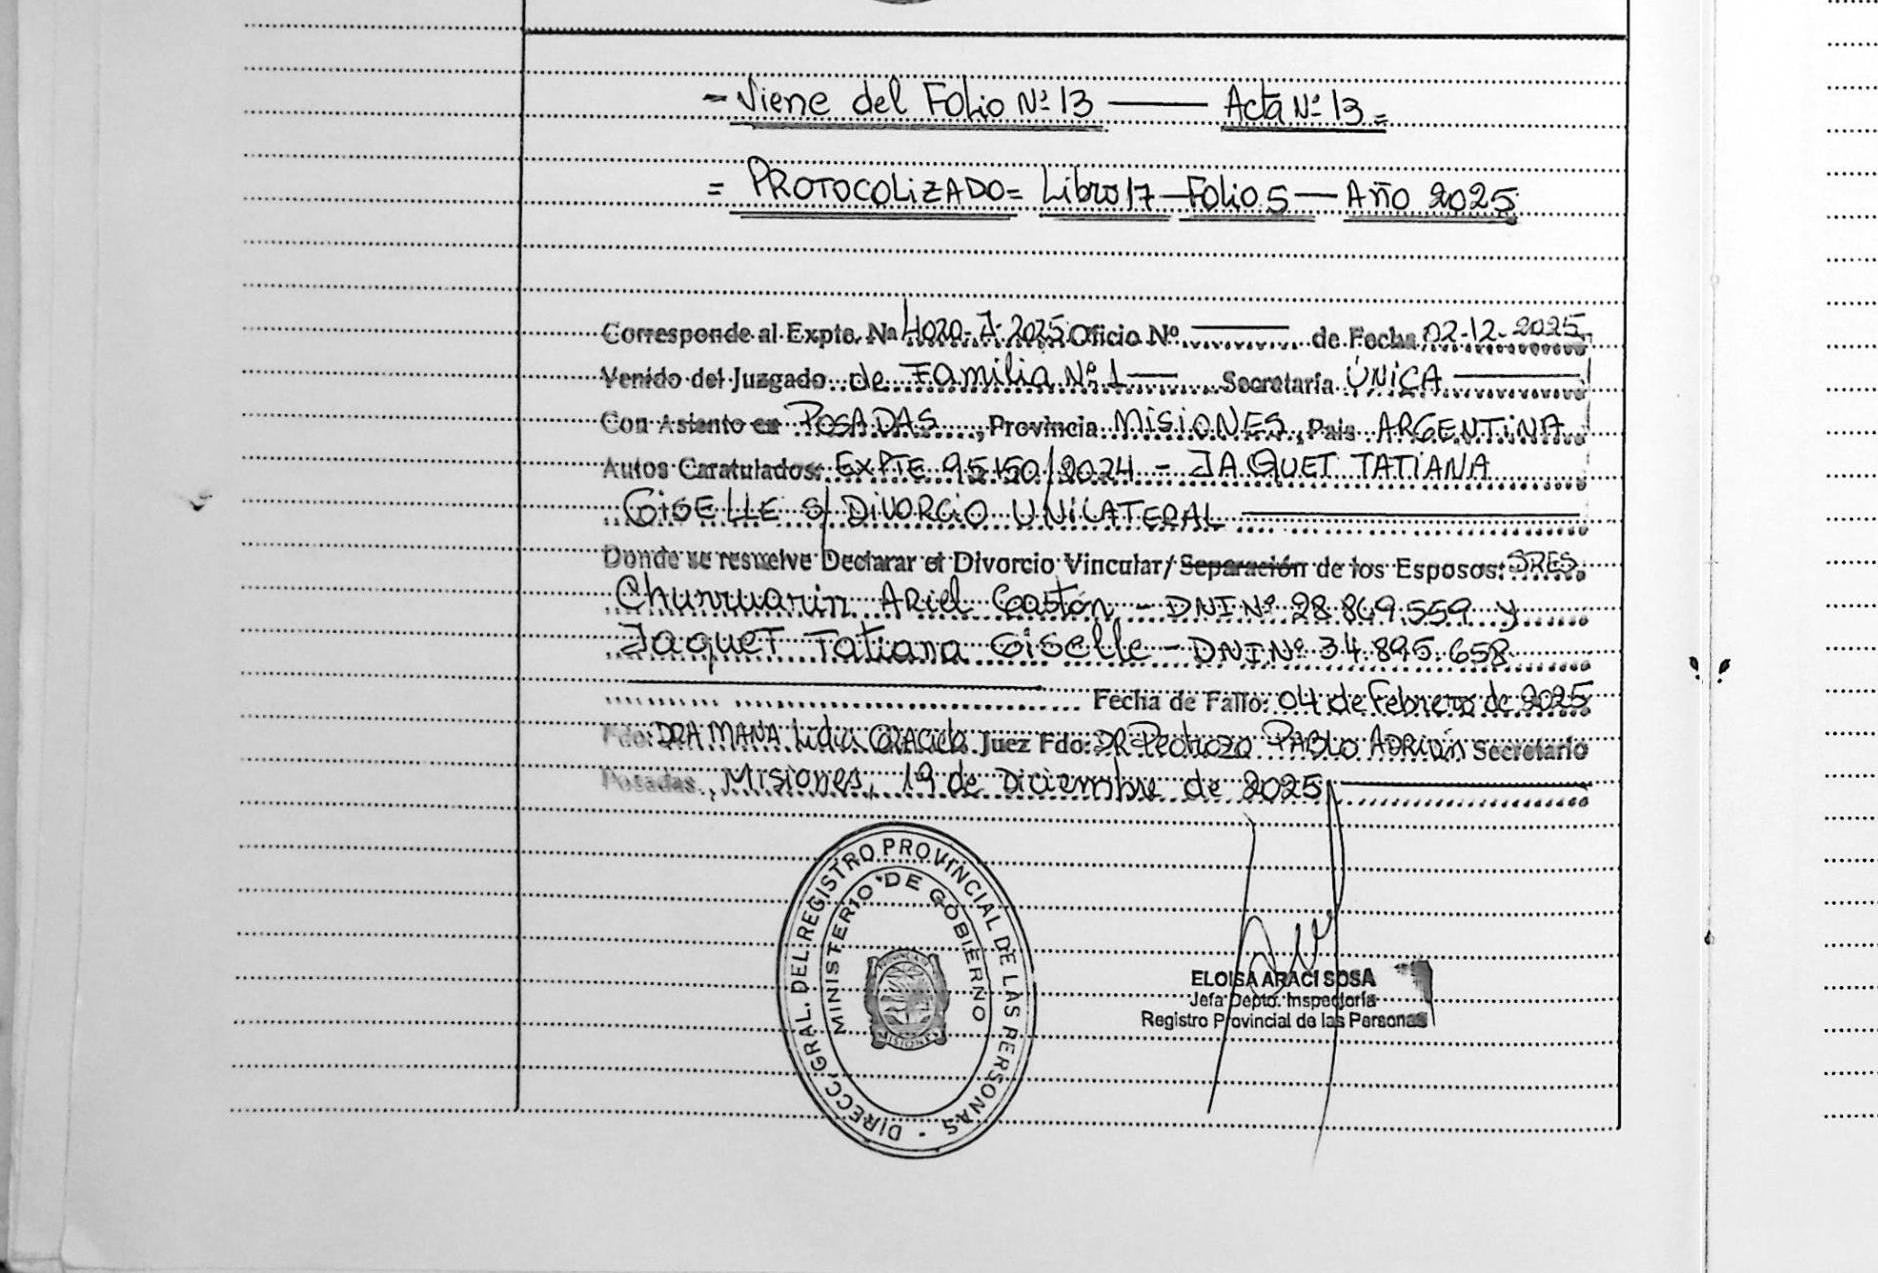 - Viene del Folio Nº 13 —— Acta Nº 13 =
= PROTOCOLIZADO = Libro 17 — Folio 5 — Año 2025
Corresponde al Expte. Nª 4020-J-2025 Oficio Nº. —— de Fecha 02-12-2025
Venido del Juzgado de Familia Nº 1 —— Secretaría ÚNICA ——
Con Asiento en POSADAS, Provincia MISIONES, País ARGENTINA
Autos Caratulados: EXPTE 95150/2024 - JAQUET TATIANA
GISELLE S/ DIVORCIO UNILATERAL ——
Donde se resuelve Declarar el Divorcio Vincular/ Separación de los Esposos: SRES
Ariel Gastón - DNI Nº 28.849.559 y
Jaquet Tatiana Giselle - DNI Nº 34.895.658
Fecha de Fallo: 04 de Febrero de 2025
Fdo: DRA Lidia Juez Fdo: DR Pedrozo PABLO ADRIÁN Secretario
Posadas, Misiones, 19 de Diciembre de 2025 ——
DIRECC. GRAL. DEL REGISTRO PROVINCIAL DE LAS PERSONAS -
MINISTERIO DE GOBIERNO
MISIONES
ELOISA ARACI SOSA
Jefa Depto. Inspectoría
Registro Provincial de las Personas